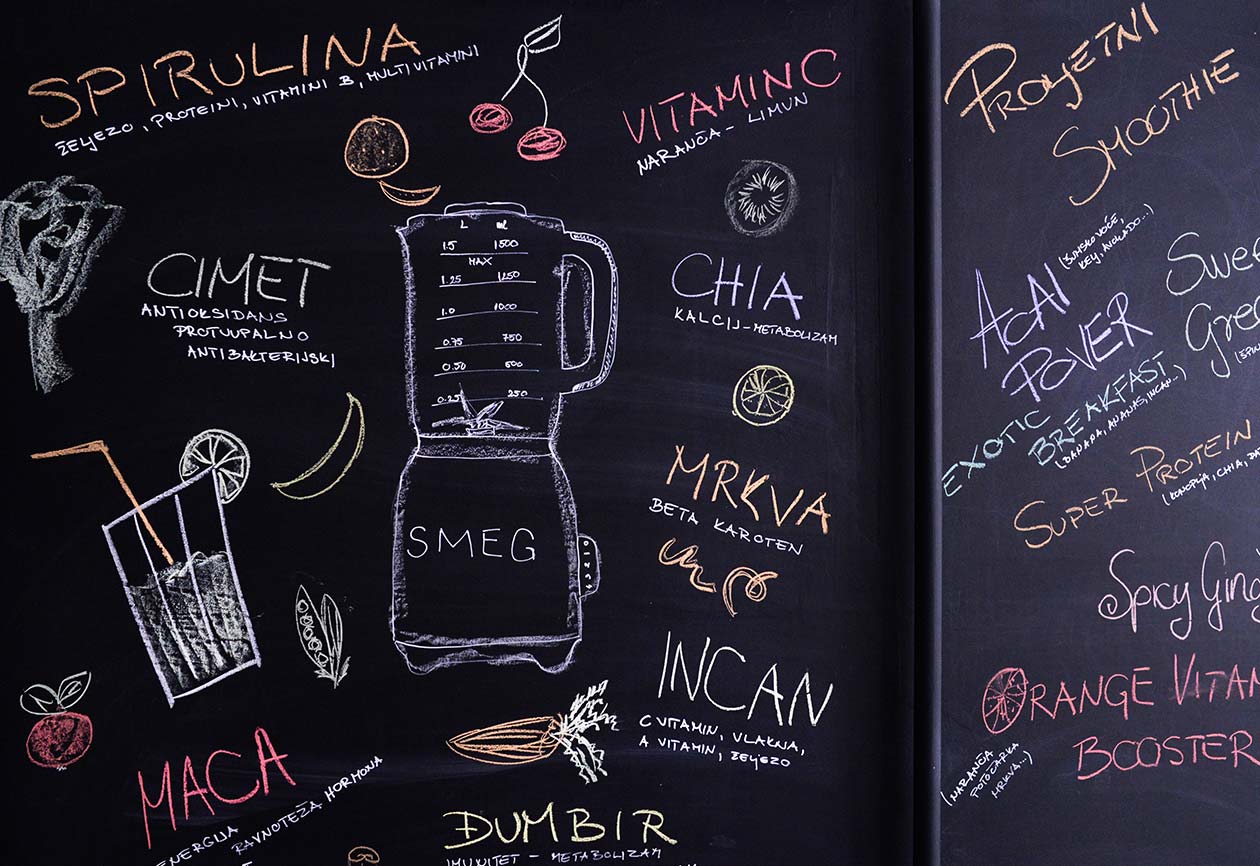 SPIRULINA
ŽELJEZO, PROTEINI, VITAMINI B, MULTIVITAMINI
VITAMIN C
NARANČA - LIMUN
CIMET
ANTIOKSIDANS
PROTUUPALNO
ANTIBAKTERIJSKI
L ml
1.5 1500
MAX
1.25 1250
1.0 1000
0.75 750
0.50 500
0.25 250
SMEG
CHIA
KALCIJ-METABOLIZAM
MRKVA
BETA KAROTEN
INCAN
C VITAMIN, VLAKNA,
A VITAMIN, ŽELJEZO
MACA
ENERGIJA
RAVNOTEŽA HORMONA
ĐUMBIR
IMUNITET - METABOLIZAM
PROLJETNI
SMOOTHIE
ACAI
POVER
(ŠUMSKO VOĆE,
KELJ, AVOKADO...)
EXOTIC
BREAKFAST
(BANANA, ANANAS, INCAN...)
SUPER PROTEIN
(KONOPLJA, CHIA,
SPICY
ORANGE
BOOSTER
(NARANČA
POTOČARKA
MRKVA...)